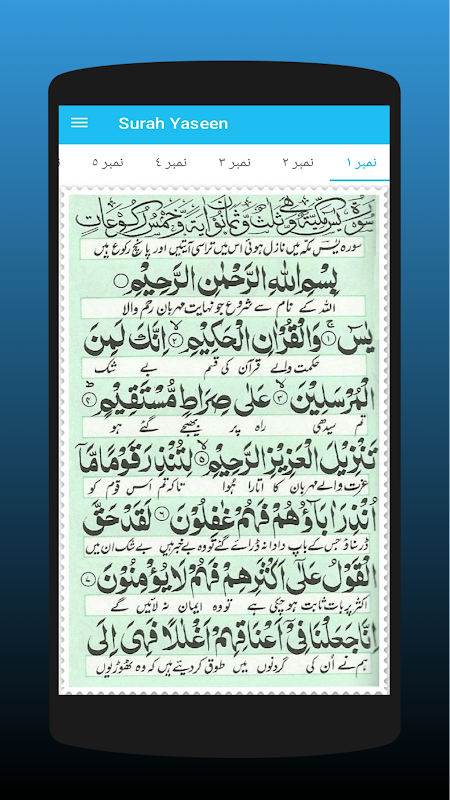 Surah Yaseen
نمبر ١
نمبر ٢
نمبر ٣
نمبر ٤
نمبر ٥
سورة يس مكية وهي ثلث وثمانون اية وخمس ركوعات
سورہ یٰس مکہ میں نازل ہوئی اس میں تراسی آیتیں اور پانچ رکوع ہیں
بِسْمِ اللّٰهِ الرَّحْمٰنِ الرَّحِيْمِ
اللہ کے نام سے شروع جو نہایت مہربان رحم والا
يٰسٓ ۝١ وَالْقُرْاٰنِ الْحَكِيْمِ ۝٢ اِنَّكَ لَمِنَ
حکمت والے قرآن کی قسم بے شک
الْمُرْسَلِيْنَ ۝٣ عَلٰى صِرَاطٍ مُّسْتَقِيْمٍ ۝٤
تم سیدھی راہ پر بھیجے گئے ہو
تَنْزِيْلَ الْعَزِيْزِ الرَّحِيْمِ ۝٥ لِتُنْذِرَ قَوْمًا مَّآ
عزت والے مہربان کا اتارا ہوا تاکہ تم اس قوم کو
اُنْذِرَ اٰبَآؤُهُمْ فَهُمْ غٰفِلُوْنَ ۝٦ لَقَدْ حَقَّ
ڈر سناؤ جس کے باپ دادا نہ ڈرائے گئے تو وہ بے خبر ہیں بے شک ان میں
الْقَوْلُ عَلٰٓى اَكْثَرِهِمْ فَهُمْ لَا يُؤْمِنُوْنَ ۝٧
اکثر پر بات ثابت ہو چکی ہے تو وہ ایمان نہ لائیں گے
اِنَّا جَعَلْنَا فِيْٓ اَعْنَاقِهِمْ اَغْلٰلًا فَهِىَ اِلَى
ہم نے اُن کی گردنوں میں طوق کر دیے ہیں کہ وہ ٹھوڑیوں